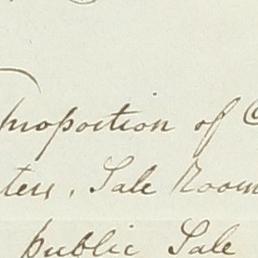 proportion of
ters, Sale Room
public Sale